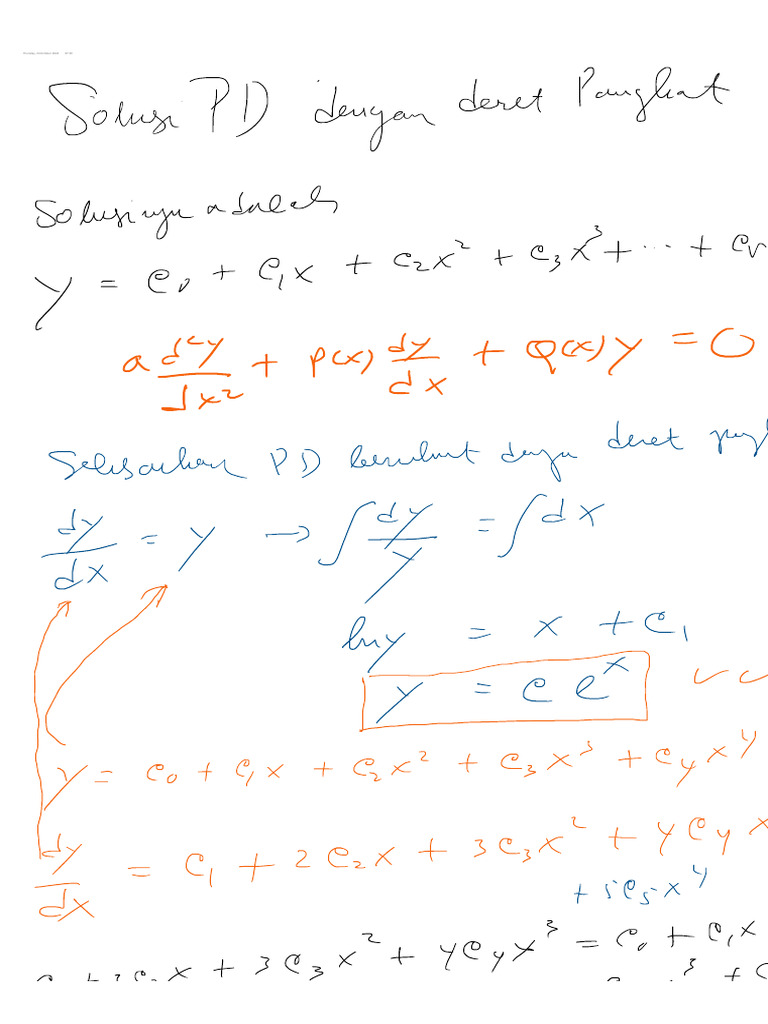 Solusi PD dengan deret Pangkat
Solusinya adalah
y = c₀ + c₁x + c₂x² + c₃x³ + ... + c
a d²y/dx² + P(x) dy/dx + Q(x) y = 0
Selesaikan PD berikut dengan deret
dy/dx = y → ∫ dy/y = ∫ dx
ln y = x + c₁
y = c eˣ
y = c₀ + c₁x + c₂x² + c₃x³ + c₄x⁴
dy/dx = c₁ + 2c₂x + 3c₃x² + 4c₄x
+ 5c₅x⁴
c₁ + 2c₂x + 3c₃x² + 4c₄x³ = c₀ + c₁x